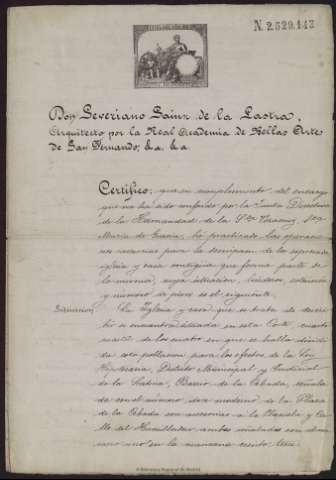 N. 2.529.143
Don Severiano Sainz de la Lastra,
Arquitecto por la Real Academia de Bellas Artes
de San Fernando, &.a &.a
Certifico: que en cumplimiento del encargo
que me ha sido conferido por la Junta Directiva
de la Hermandad de la Sta Veracruz, Sta
María de Gracia, he practicado las operacio-
nes necesarias para la descripcion de la expresada
iglesia y casa contigua que forma parte de
la misma, cuya situacion, linderos, estension
y numero de pisos es el siguiente.
Situacion. La Iglesia y casa que se trata de descri-
bir se encuentra situada en esta Corte, cuarta
parte de las cuatro en que se halla dividi
da esta poblacion para los efectos de la Ley
Hipotecaria, Distrito Municipal y Judicial
de la Latina, Barrio de la Cebada, señala-
da con el número dos moderno de la Plaza
de la Cebada con accesorias a la Plazuela y Ca-
lle del Humilladero ambas señaladas con el nú-
mero uno en la manzana ciento